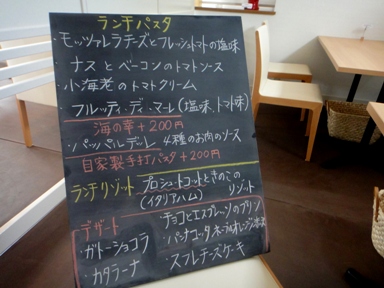 ランチパスタ
・モッツァレラチーズとフレッシュトマトの塩味
・ナスとベーコンのトマトソース
・小海老のトマトクリーム
・フルッティ・ディ・マーレ(塩味、トマト味)
海の幸+200円
・パッパルデッレ 4種のお肉のソース
自家製手打パスタ+200円
ランチリゾット プロシュートコットときのこの
(イタリアハム) リゾット
デザート ・チョコとエスプレッソのプリン
・ガトーショコラ ・パンナコッタ
・カタラーナ ・スフレチーズケーキ